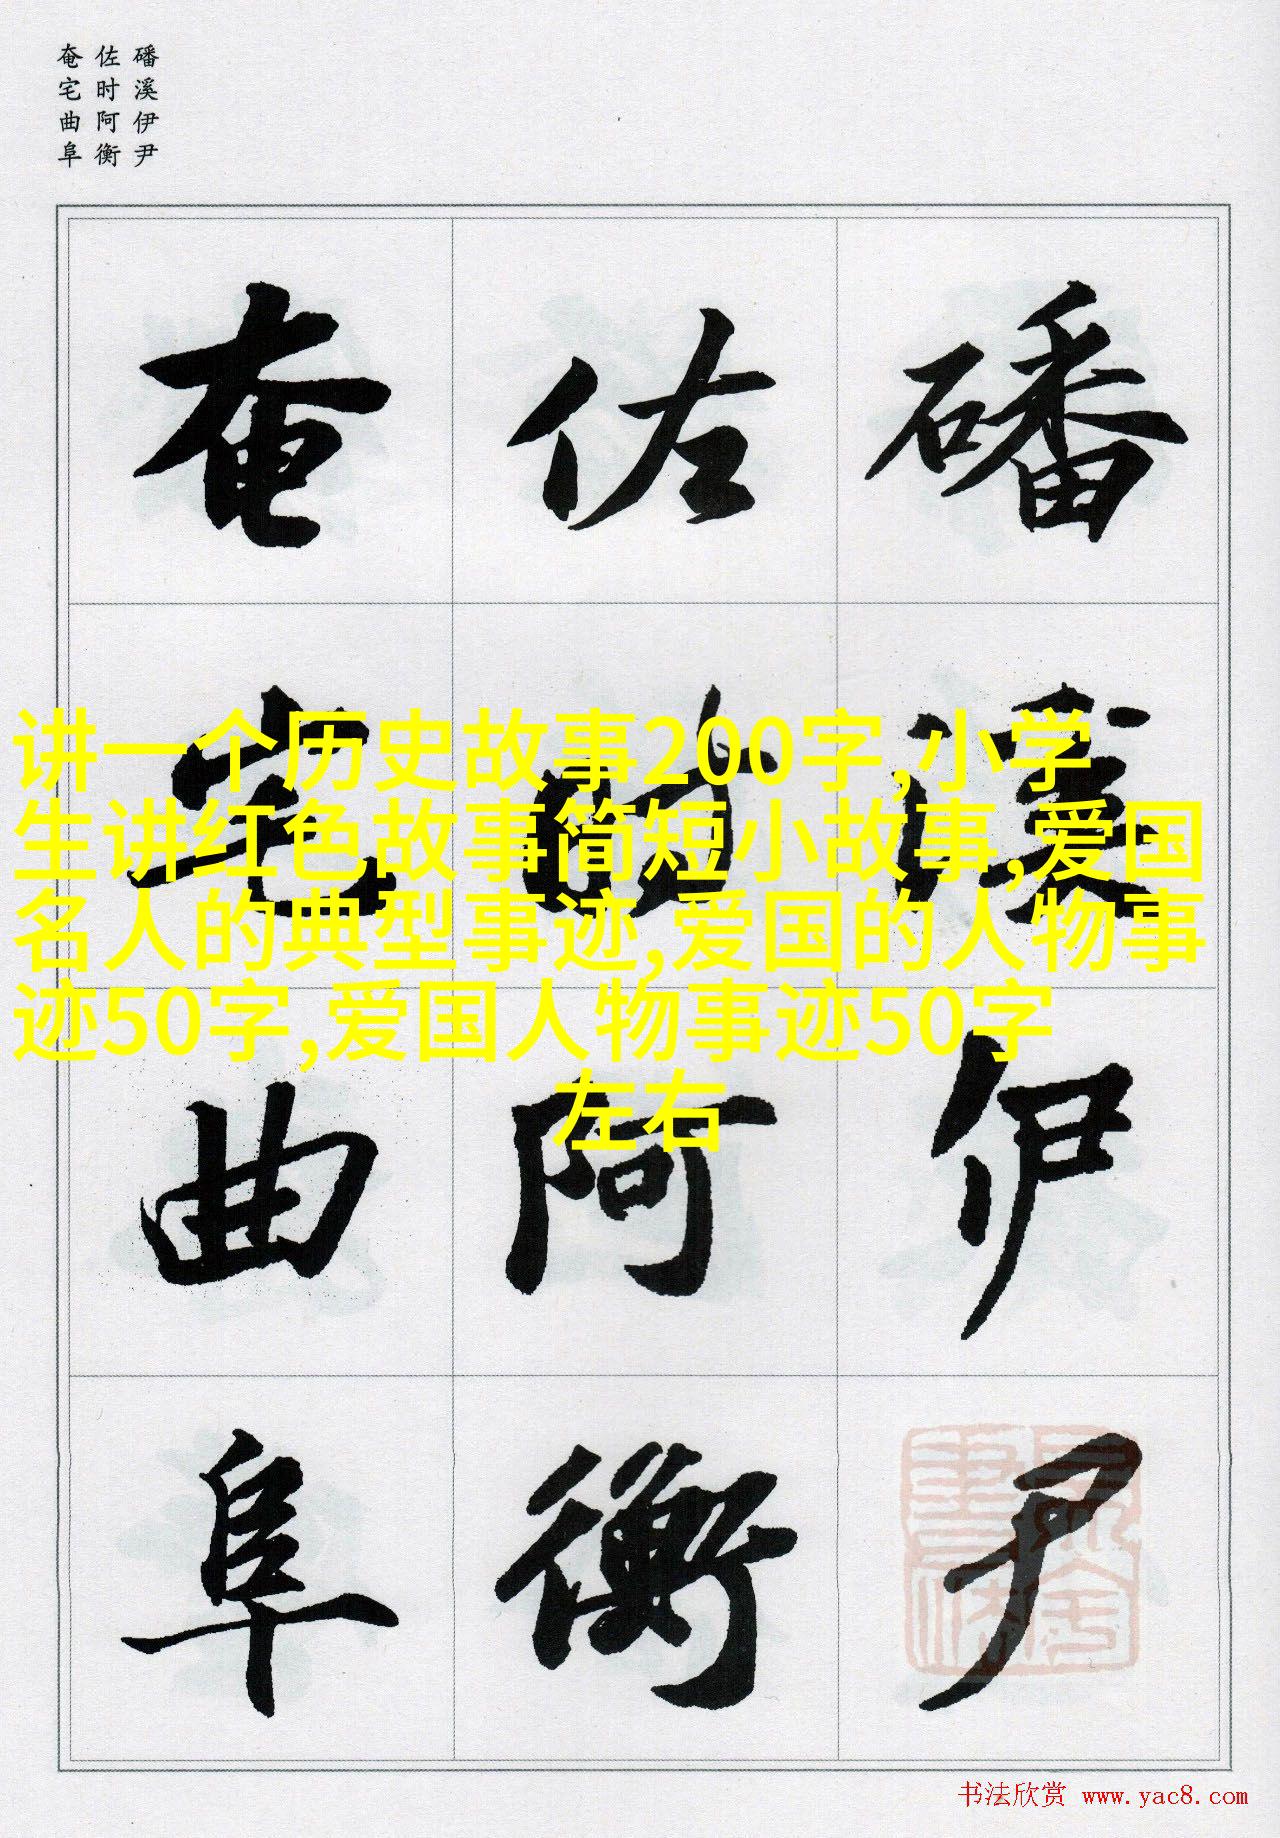 磻溪伊尹
佐时阿衡
奄宅曲阜
磻溪伊尹
佐时阿衡
奄宅曲阜
讲一个历史故事200字,小学
生讲红色故事简短小故事,爱国
名人的典型事迹,爱国的人物事
迹50字,爱国人物事迹50字
左右
书法欣赏 www.yac8.com